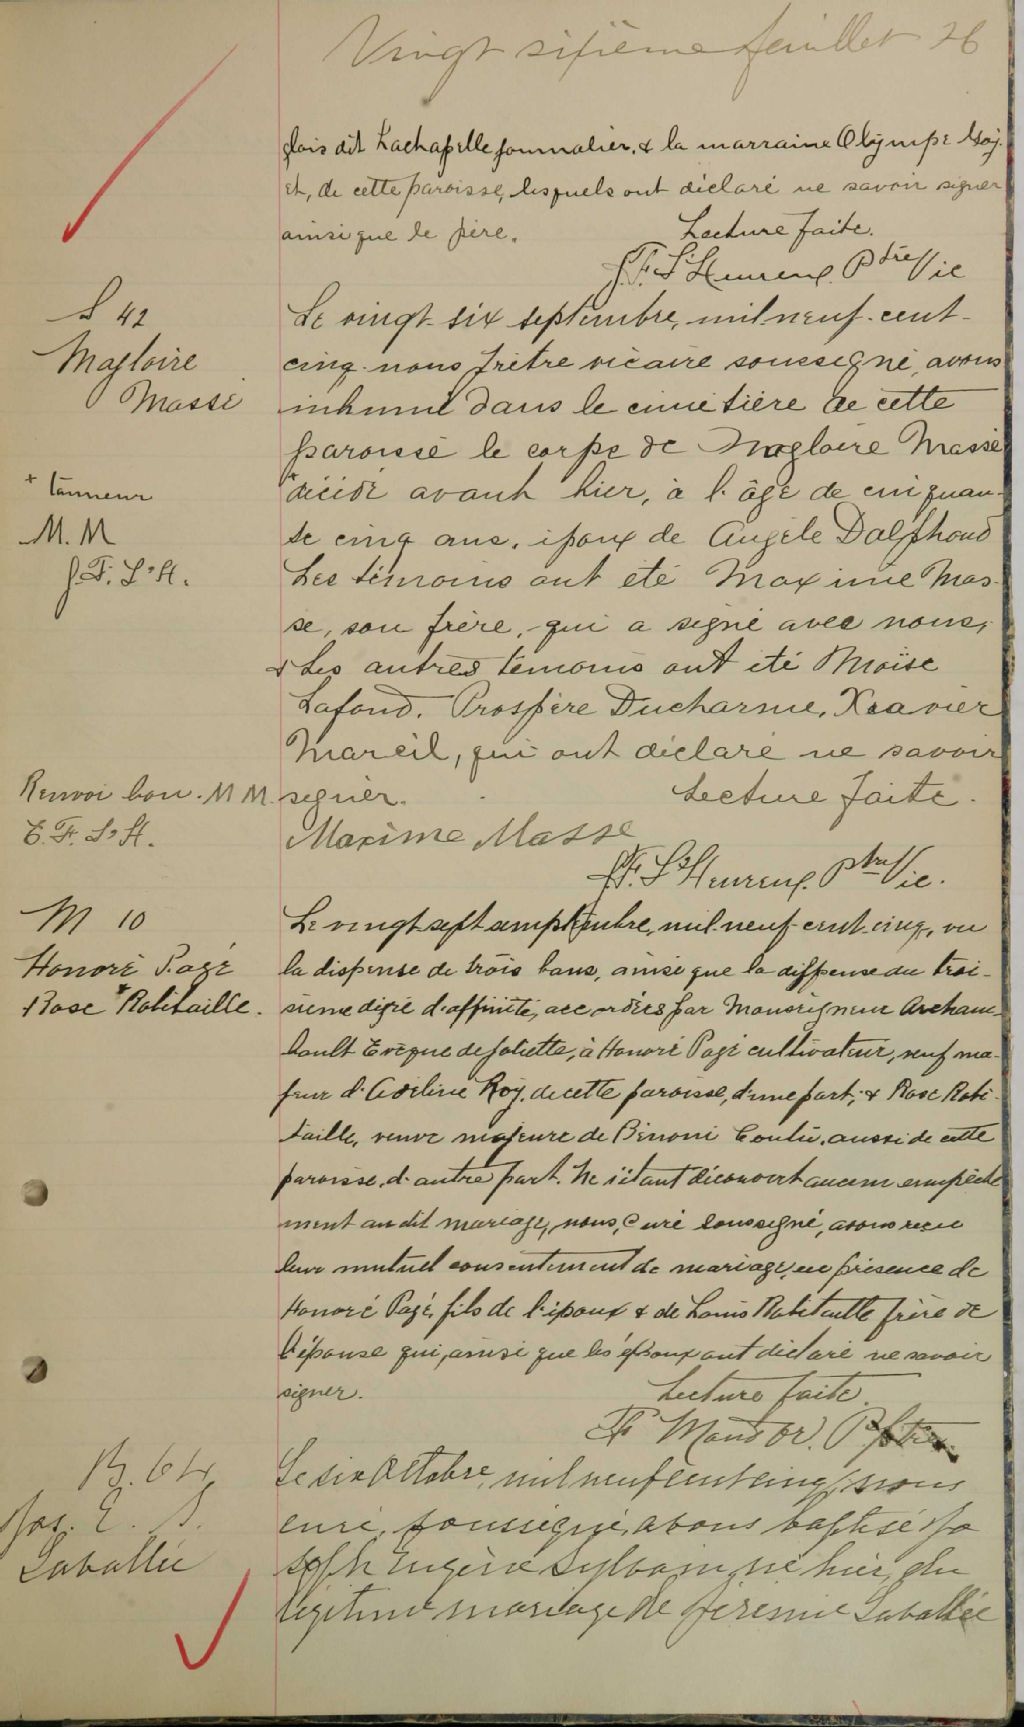 Vingt sixième feuillet 26
glois dit Lachapelle journalier, & la marraine Olympe Goy-
et, de cette paroisse, lesquels ont déclaré ne savoir signer
ainsi que le père. Lecture faite.
J. F. L'Heureux Ptre Vic
S 42
Magloire
Massé
Le vingt-six septembre, mil-neuf-cent-
cinq nous prêtre vicaire soussigné, avons
inhumé dans le cimetière de cette
paroisse le corps de Magloire Massé
+ tanneur
M. M
J. F. L'H.
+ décédé avant hier, à l'âge de cinquan-
te cinq ans, époux de Angèle Dalphond
Les témoins ont été Maxime Mas-
se, son frère, qui a signé avec nous,
& Les autres témoins ont été Moïse
Lafond, Prospère Ducharme, Xavier
Mareil, qui ont déclaré ne savoir
Renvoi bon. M M
signer. Lecture faite.
J. F. L'H.
Maxime Masse
J. F. L'Heureux Ptre Vic.
M 10
Honoré Pagé
& Rose Robitaille.
Le vingt sept semptembre, mil-neuf-cent-cinq, vu
la dispense de trois bans, ainsi que la dispense du troi-
sième degré d'affinité, accordées par Monseigneur Archam-
bault Evêque de Joliette, à Honoré Pagé cultivateur, veuf ma-
jeur d'Adeline Roy, de cette paroisse, d'une part; & Rose Robi-
taille, veuve majeure de Bénoni Coutu, aussi de cette
paroisse, d'autre part. Ne s'étant découvert aucun empêche
ment au dit mariage, nous, Curé soussigné, avons reçu
leur mutuel consentement de mariage, en présence de
Honoré Pagé, fils de l'époux & de Louis Robitaille frère de
l'épouse qui, ainsi que les époux ont déclaré ne savoir
signer. Lecture faite.
Ptre
B. 64
Jos. E. S.
Lavallée
Le six Octobre, mil neuf cent cinq, nous
curé, soussigné, avons baptisé Jo
seph Eugène Sylvain, né hier, du
légitime mariage de Jérémie Lavallée